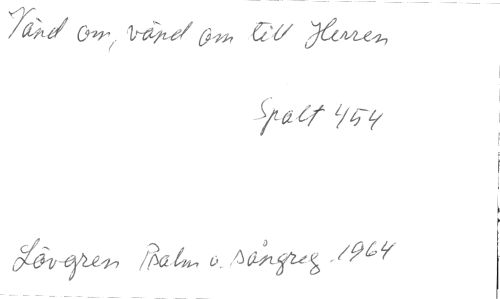 Vänd om, vänd om till Herren
Spalt 454
Lövgren Psalm o. sångreg. 1964